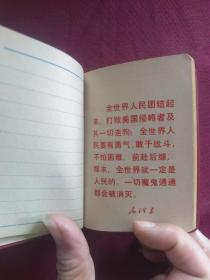 全世界人民团结起
来，打败美国侵略者及
其一切走狗！全世界人
民要有勇气，敢于战斗，
不怕困难，前赴后继，
那末，全世界就一定是
人民的。一切魔鬼通通
都会被消灭。
毛泽东